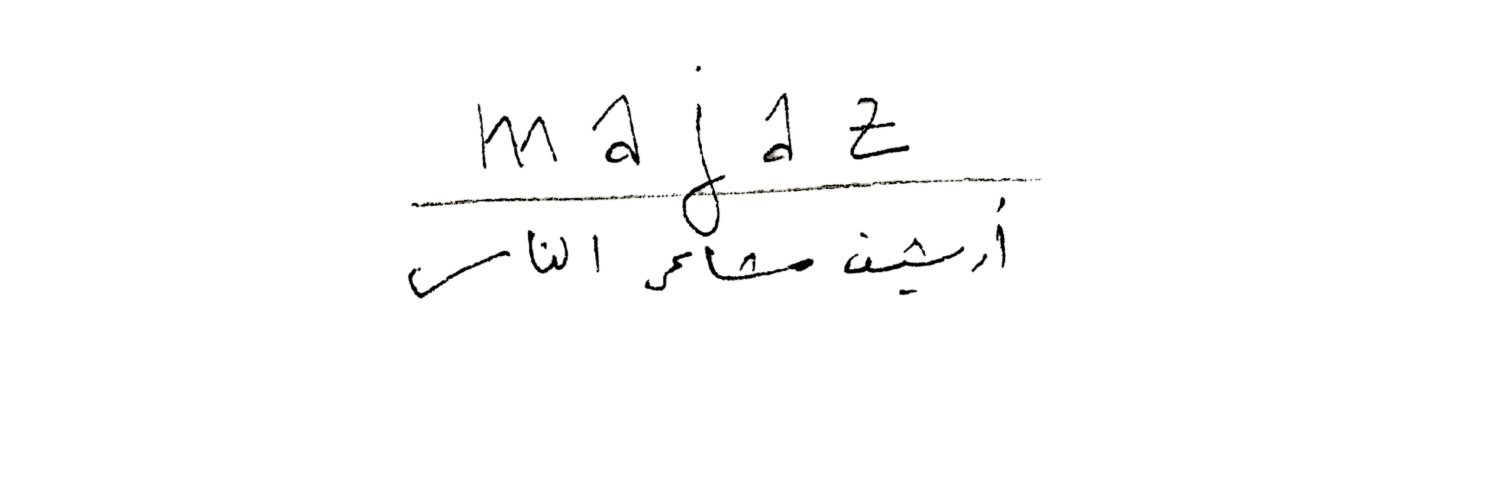 majaz
أرشيف مشاعر الناس